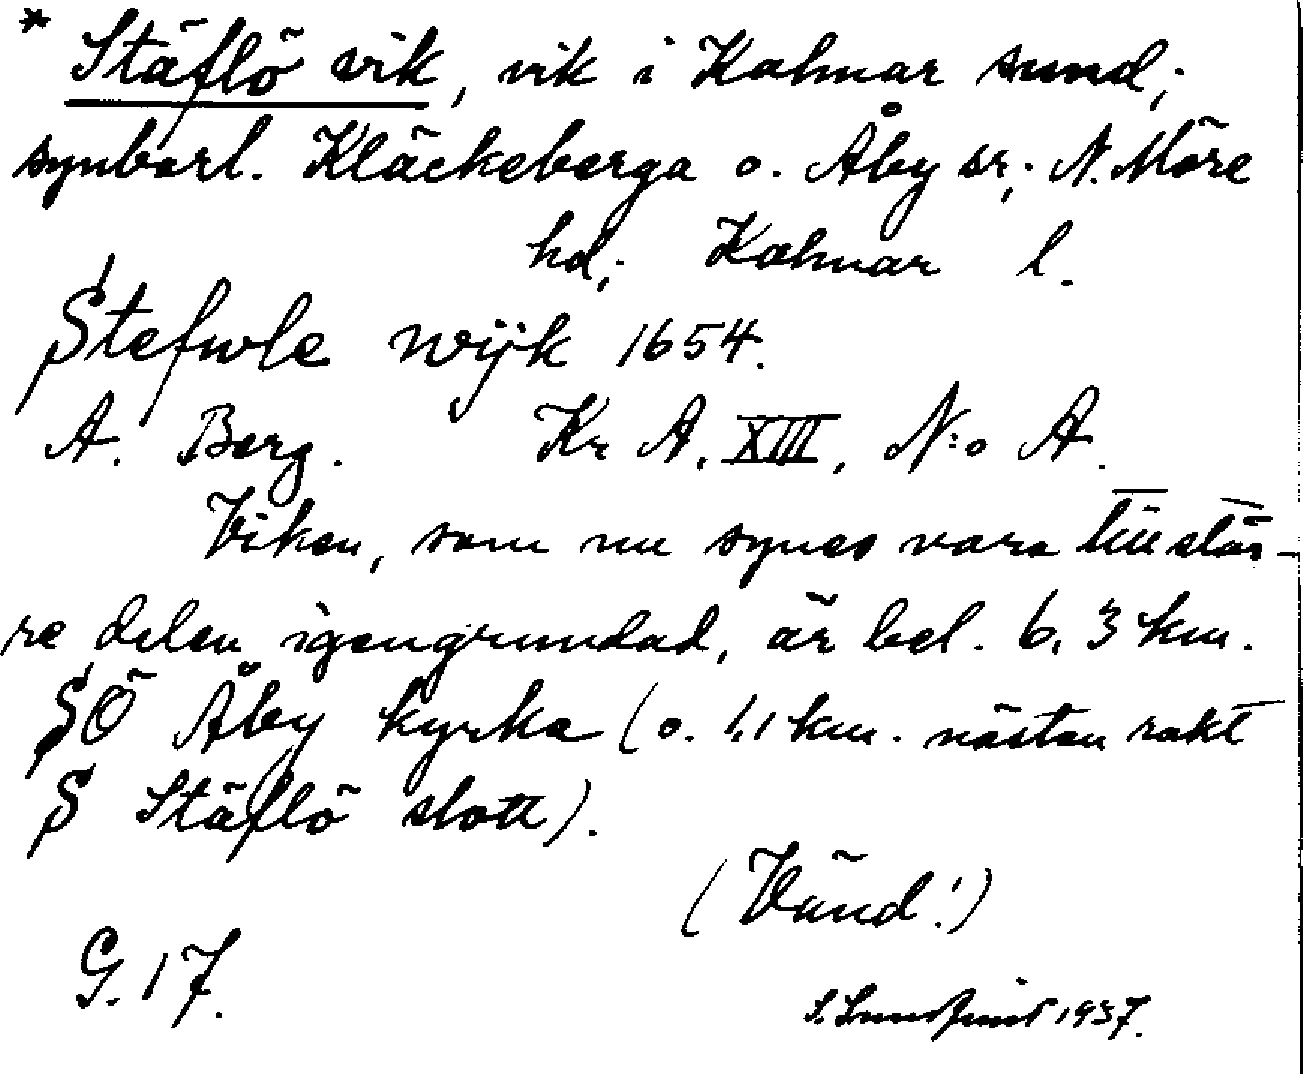 * Stäflö vik, vik i Kalmar sund;
synbarl. Kläckeberga o. Åby sr; N. Möre
hd; Kalmar l.
Stefwle wijk 1654.
A. Berg. Kr A. XIII, N:o A.
Viken, som nu synes vara till stör-
re delen igengrundad, är bel. 6,3 km.
SÖ Åby kyrka (o. 1,1 km. nästan rakt
S Stäflö slott).
(Vänd!)
G. 17.
S. 1937.